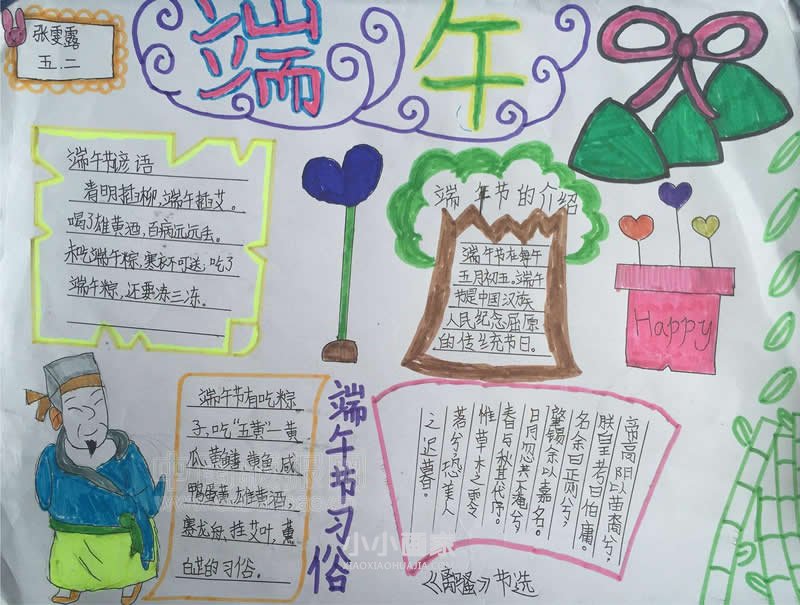 张雯露
五.二
端午
端午节谚语
清明插柳,端午插艾。
喝了雄黄酒,百病远远丢。
未吃端午粽,寒衣不可送;吃了
端午粽,还要冻三冻。
端午节的介绍
端午节在每年
五月初五。端午
节是中国汉族
人民纪念屈原
的传统节日。
Happy
端午节有吃粽
子,吃“五黄”—黄
瓜、黄鳝、黄鱼、咸
鸭蛋黄、雄黄酒,
赛龙舟,挂艾叶,薰
白芷的习俗。
端午节习俗
帝高阳以苗裔兮,
朕皇考曰伯庸。
名余曰正则兮,
肇锡余以嘉名。
日月忽其不淹兮,
春与秋其代序。
惟草木之零
落兮,恐美人
之迟暮。
《离骚》节选
小小画家
XIAOXIAOHUAJIA.COM